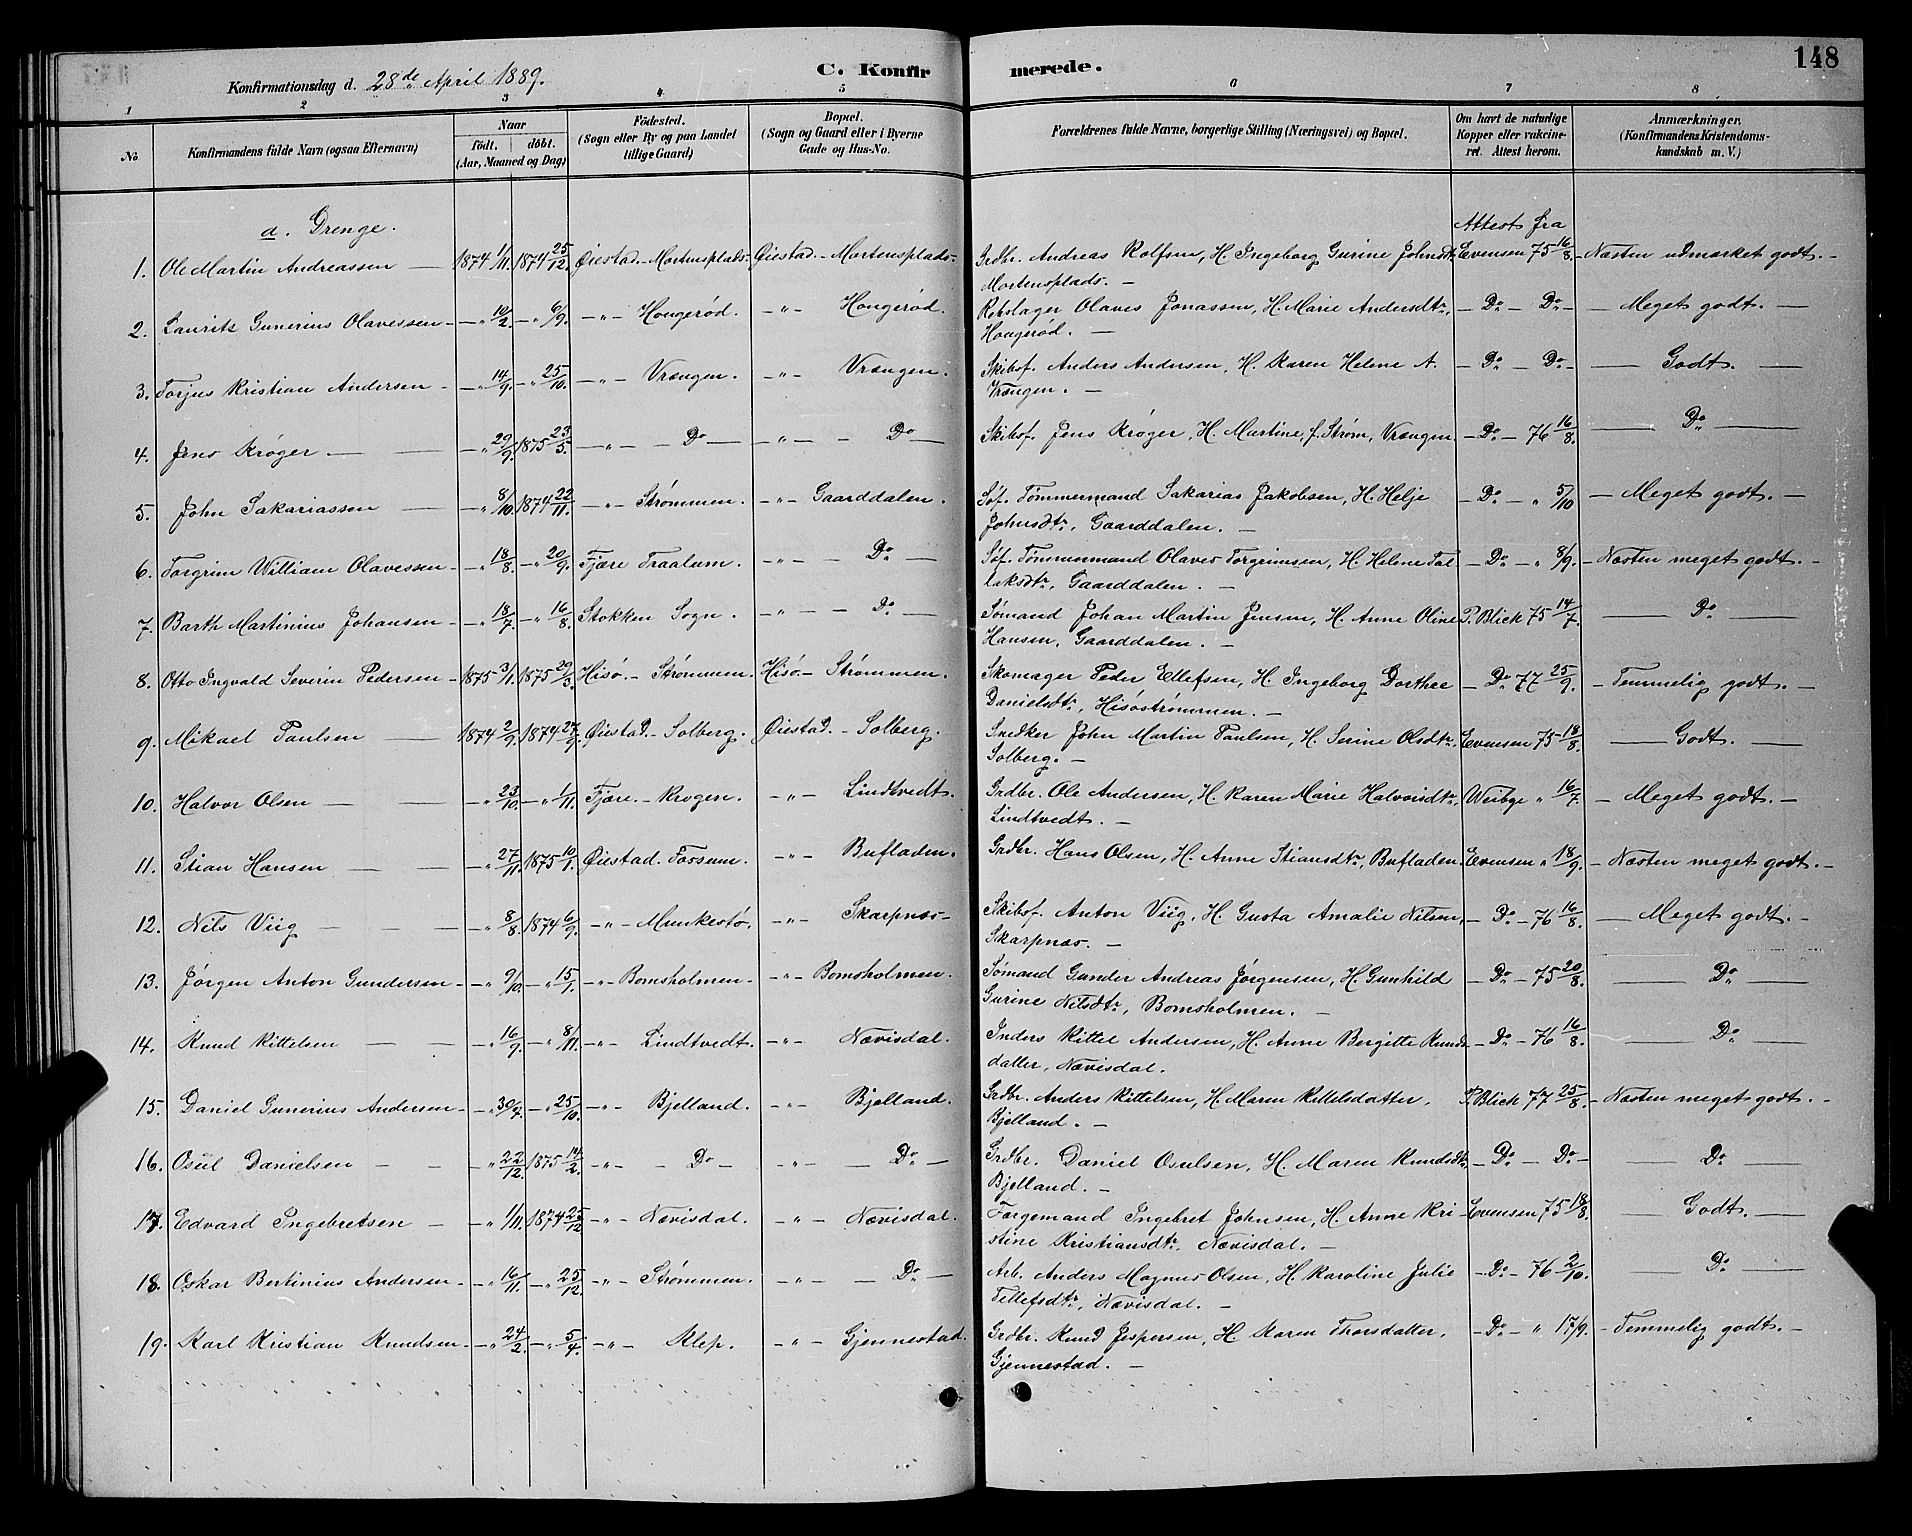 148
Konfirmationsdag d. 28de April 1889. C. Konfir merede.
1 2 3 4 5 6 7 8
No. Konfirmandens fulde Navn (ogsaa Efternavn) Naar födt. döbt. (Aar, Maaned og Dag) Födested. (Sogn eller By og paa Landet tillige Gaard) Bopæl. (Sogn og Gaard eller i Byerne Gade og Hus-No. Forældrenes fulde Navne, borgerlige Stilling (Næringsvei) og Bopæl. Om havt de naturlige Kopper eller vakcineret. Attest herom. Anmærkninger, (Konfirmandens Kristendomskundskab m. V.)
a. Drenge. Attest fra
1. Ole Martin Andreassen — 1874 1/11. 1874 25/12. Øiestad.- Mortensplads. Øiestad.- Mortensplads.- Grdbr. Andreas Rolfsen, H. Ingeborg Gurine Johnsdtr. Evensen 75 16/8. - Næsten udmærket godt. -
Mortensplads. -
2. Laurits Gunerius Olavessen - -"- 10/2. -"- 6/9. -"- Hougerød. -"- Hougerød. Rebslager Olaves Jonassen, H. Marie Andersdtr., - Do - Do - - Meget godt. -
Hougerød. -
3. Torjus Kristian Andersen - -"- 14/9. -"- 25/10. -"- Vrængen. -"- Vrængen. Skibsf. Anders Andersen, H. Karen Helene A. - Do - Do - — Godt. —
Vrængen. -
4. Jens Krøger — -"- 29/9. 1875 23/5. -"- Do - -"- Do - Skibsf. Jens Krøger, H. Martine, f. Strøm, Vrængen - Do - 76 16/8. — Do —
5. John Sakariassen — -"- 8/10. 1874 22/11. -"- Strømmen. -"- Gaarddalen. Søf. Tømmermand Sakarias Jakobsen, H. Helje - Do - " 5/10 - Meget godt. -
Johnsdtr., Gaarddalen. -
6. Torgrim William Olavessen - -"- 18/8. -"- 20/9. Fjære Traalum. -"- Do - Søf. Tømmermand Olaves Torgrimsen, H. Helene Tal- - Do - " 8/9. - Næsten meget godt. -
laksdtr., Gaarddalen. -
7. Barth Martinius Johansen - -"- 18/7. -"- 16/8. Stokken Sogn. -"- Do - Sømand Johan Martin Jensen, H. Anne Oline P. Blick 75 14/7. — Do —
Hansen, Gaarddalen. -
8. Otto Ingvald Severin Pedersen - 1875 3/1. 1875 29/3. Hisø.- Strømmen. Hisø.- Strømmen. Skomager Peder Ellefsen, H. Ingeborg Dorthee - Do 77 25/9. - Temmelig godt. -
Danielsdtr., Hisøstrømmen. -
9. Mikael Paulsen — 1874 2/9. 1874 27/9. Øiestad.- Solberg. Øiestad.- Solberg. Snedker John Martin Paulsen, H. Serine Olsdtr. Evensen 75 18/8. — Godt. —
Solberg. -
10. Halvor Olsen — -"- 23/10. -"- 1/11. Fjære.- Krogen. -"- Lindtvedt. Grdbr. Ole Andersen, H. Karen Marie Halvorsdtr., Weibye " 16/7. - Meget godt. -
Lindtvedt. -
11. Stian Hansen — -"- 27/11. 1875 10/1. Øiestad. Fossum. -"- Bufladen. Grdbr. Hans Olsen, H. Anne Stiansdtr., Bufladen. Evensen " 18/9. - Næsten meget godt. -
12. Nils Viig — -"- 8/8. 1874 6/9. -"- Munkestø. -"- Skarpnæs- Skibsf. Anton Viig, H. Gusta Amalie Nilsen, - Do - 76 16/8. - Meget godt. -
Skarpnæs. -
13. Jørgen Anton Gundersen - -"- 9/10. -"- 15/1. -"- Bomsholmen - -"- Bomsholmen. Sømand Gunder Andreas Jørgensen, H. Gunhild - Do - 75 20/8. — Do —
Gurine Nilsdtr., Bomsholmen. -
14. Knud Kittelsen — -"- 16/9. -"- 8/11. -"- Lindtvedt. -"- Nævisdal. Inders Kittel Andersen, H. Anne Bergitte Knuds- - Do - 76 16/8. — Do —
datter, Nævisdal.
15. Daniel Gunerius Andersen - -"- 30/7. -"- 25/10. -"- Bjelland. -"- Bjelland. Grdbr. Anders Kittelsen, H. Maren Kittelsdatter, P. Blick 77 25/8. - Næsten meget godt. -
Bjelland. -
16. Osul Danielsen — -"- 22/12. 1875 14/2. -"- Do - -"- Do - Grdbr. Daniel Osulsen, H. Maren Knudsdtr. - Do - Do - — Do —
Bjelland. -
17. Edvard Ingebretsen - -"- 1/11. 1874 25/12 -"- Nævisdal. -"- Nævisdal. Færgemand Ingebret Johnsen, H. Anne Kri- Evensen 75 18/8. — Godt. —
stine Kristiansdtr., Nævisdal. -
18. Oskar Bertinius Andersen - -"- 16/11. -"- 25/12. -"- Strømmen. -"- Do - Arb. Anders Magnus Olsen, H. Karoline Julie - Do - 76 2/10. — Do —
Tellefsdtr., Nævisdal. -
19. Karl Kristian Knudsen - -"- 24/2. -"- 5/4. -"- Klep. -"- Gjennestad. Grdbr. Knud Jespersen, H. Karen Thorsdatter, - Do - " 17/9. - Temmelig godt. -
Gjennestad. -